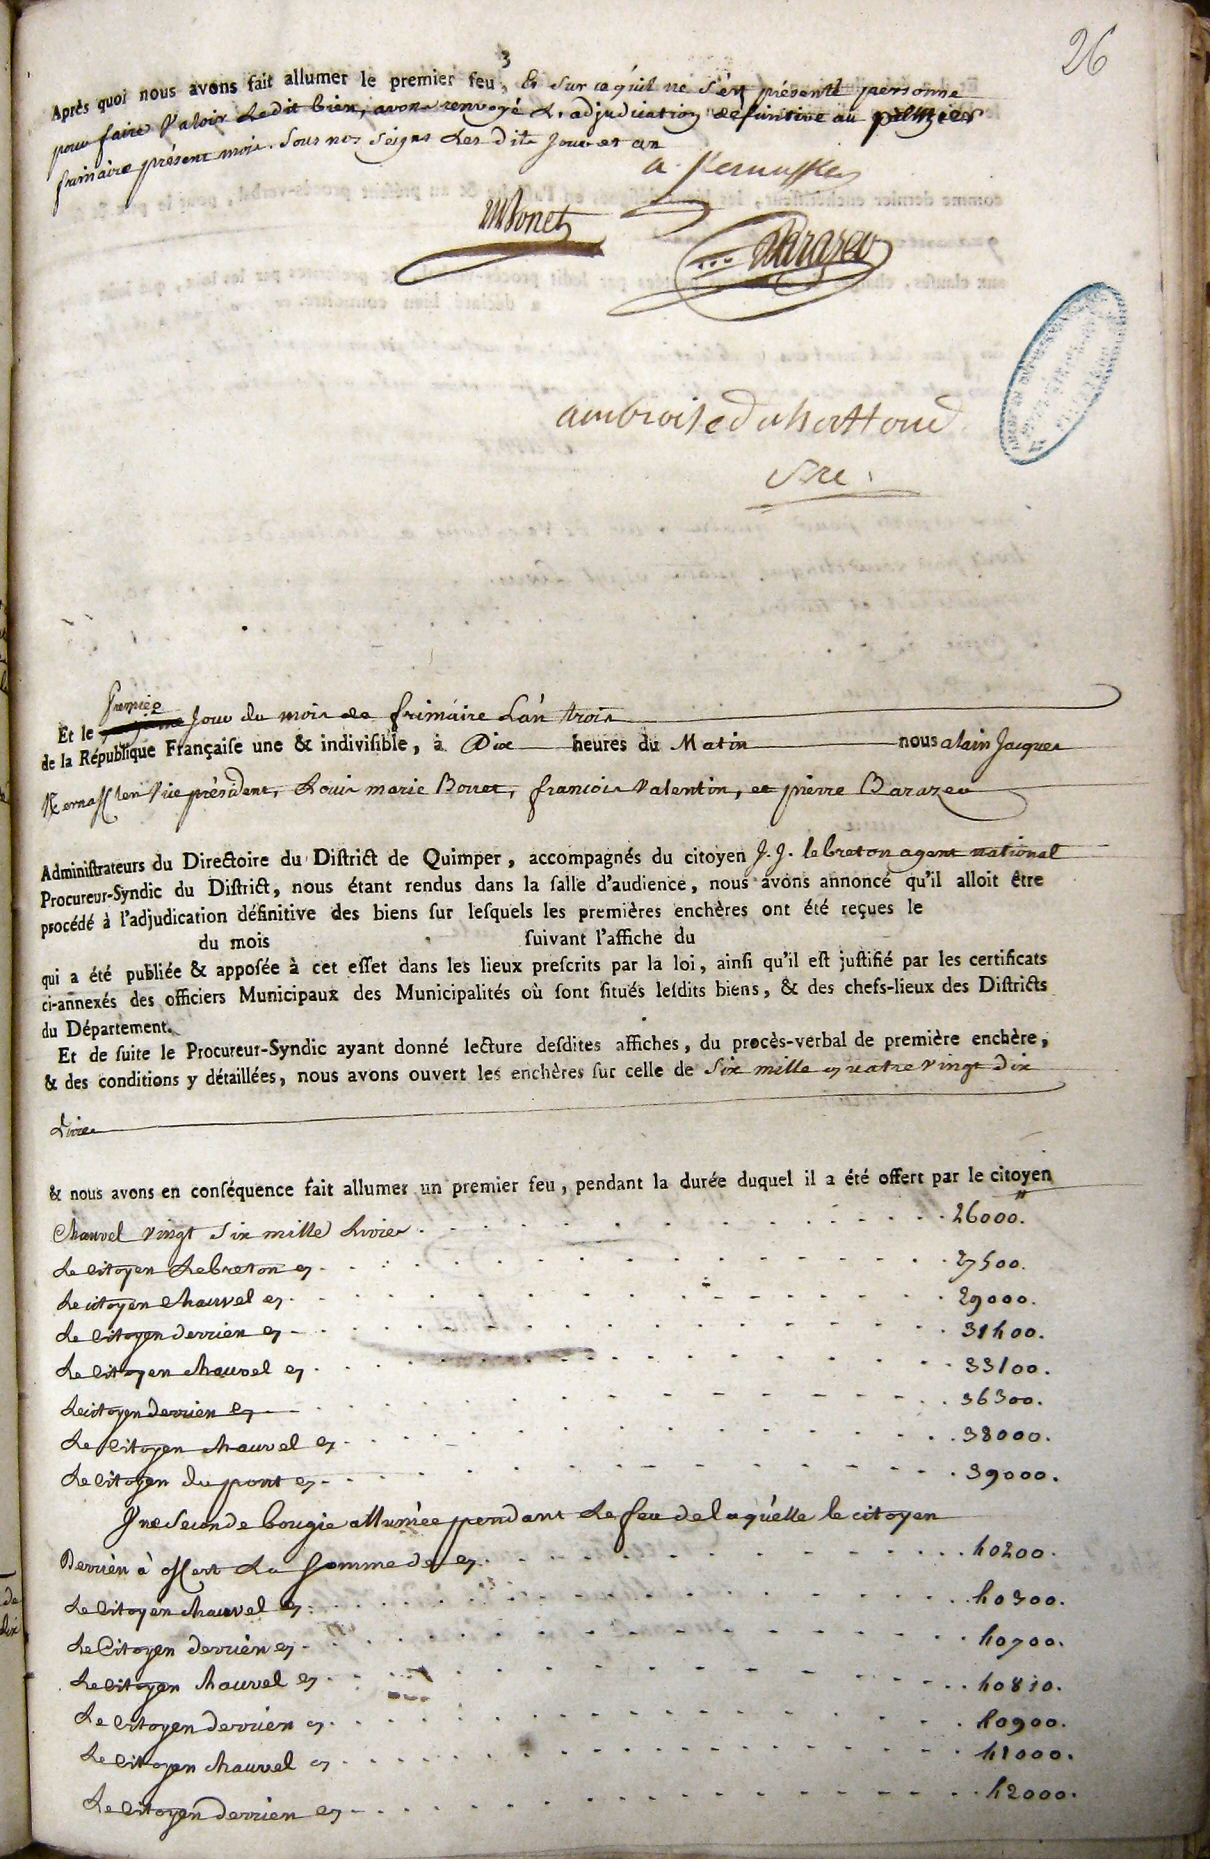 26
3
Après quoi nous avons fait allumer le premier feu, Et sur ce qu'il ne s'est présenté personne
pour faire valoir Ledit bien, avons renvoyé L'adjudication definitive au premier
frimaire présent mois. Sous nos Seigns Les dits Jour et an
Le Bonet
Barazer
ambroise duhaffond
Sre.
premier
Et le Jour du mois de frimaire L'an trois
de la République Françaiſe une & indiviſible, à Dix heures du Matin nous alain Jacques
Kernafflen Vice président, Louis marie Bonet, francois Valentin, et pierre Barazer
Adminiſtrateurs du Directoire du Diſtrict de Quimper, accompagnés du citoyen J. J. lebreton agent national
Procureur-Syndic du Diſtrict, nous étant rendus dans la ſalle d'audience, nous avons annoncé qu'il alloit être
procédé à l'adjudication définitive des biens ſur leſquels les premières enchères ont été reçues le
du mois ſuivant l'affiche du
qui a été publiée & appoſée à cet effet dans les lieux preſcrits par la loi, ainſi qu'il eſt juſtifié par les certificats
ci-annexés des officiers Municipaux des Municipalités où ſont ſitués leſdits biens, & des chefs-lieux des Diſtricts
du Département.
Et de ſuite le Procureur-Syndic ayant donné lecture deſdites affiches, du procès-verbal de première enchère,
& des conditions y détaillées, nous avons ouvert les enchères ſur celle de Six mille quatre vingt dix
Livres
& nous avons en conſéquence fait allumer un premier feu, pendant la durée duquel il a été offert par le citoyen
Chauvel vingt Six mille Livres 26000.
Le Citoyen Lebreton 27500.
Le citoyen Chauvel 29000.
Le Citoyen derrien 31400.
Le Citoyen Chauvel 33100.
Le citoyen derrien 36300.
Le Citoyen Chauvel 38000.
Le Citoyen du pont 39000.
Une Seconde bougie allumée pendant Le feu de laquelle le citoyen
Derrien à offert La Somme de 40200.
Le Citoyen Chauvel 40300.
Le Citoyen derrien 40700.
Le Citoyen Chauvel 40810.
Le Citoyen derrien 40900.
Le Citoyen Chauvel 41000.
Le Citoyen derrien 42000.